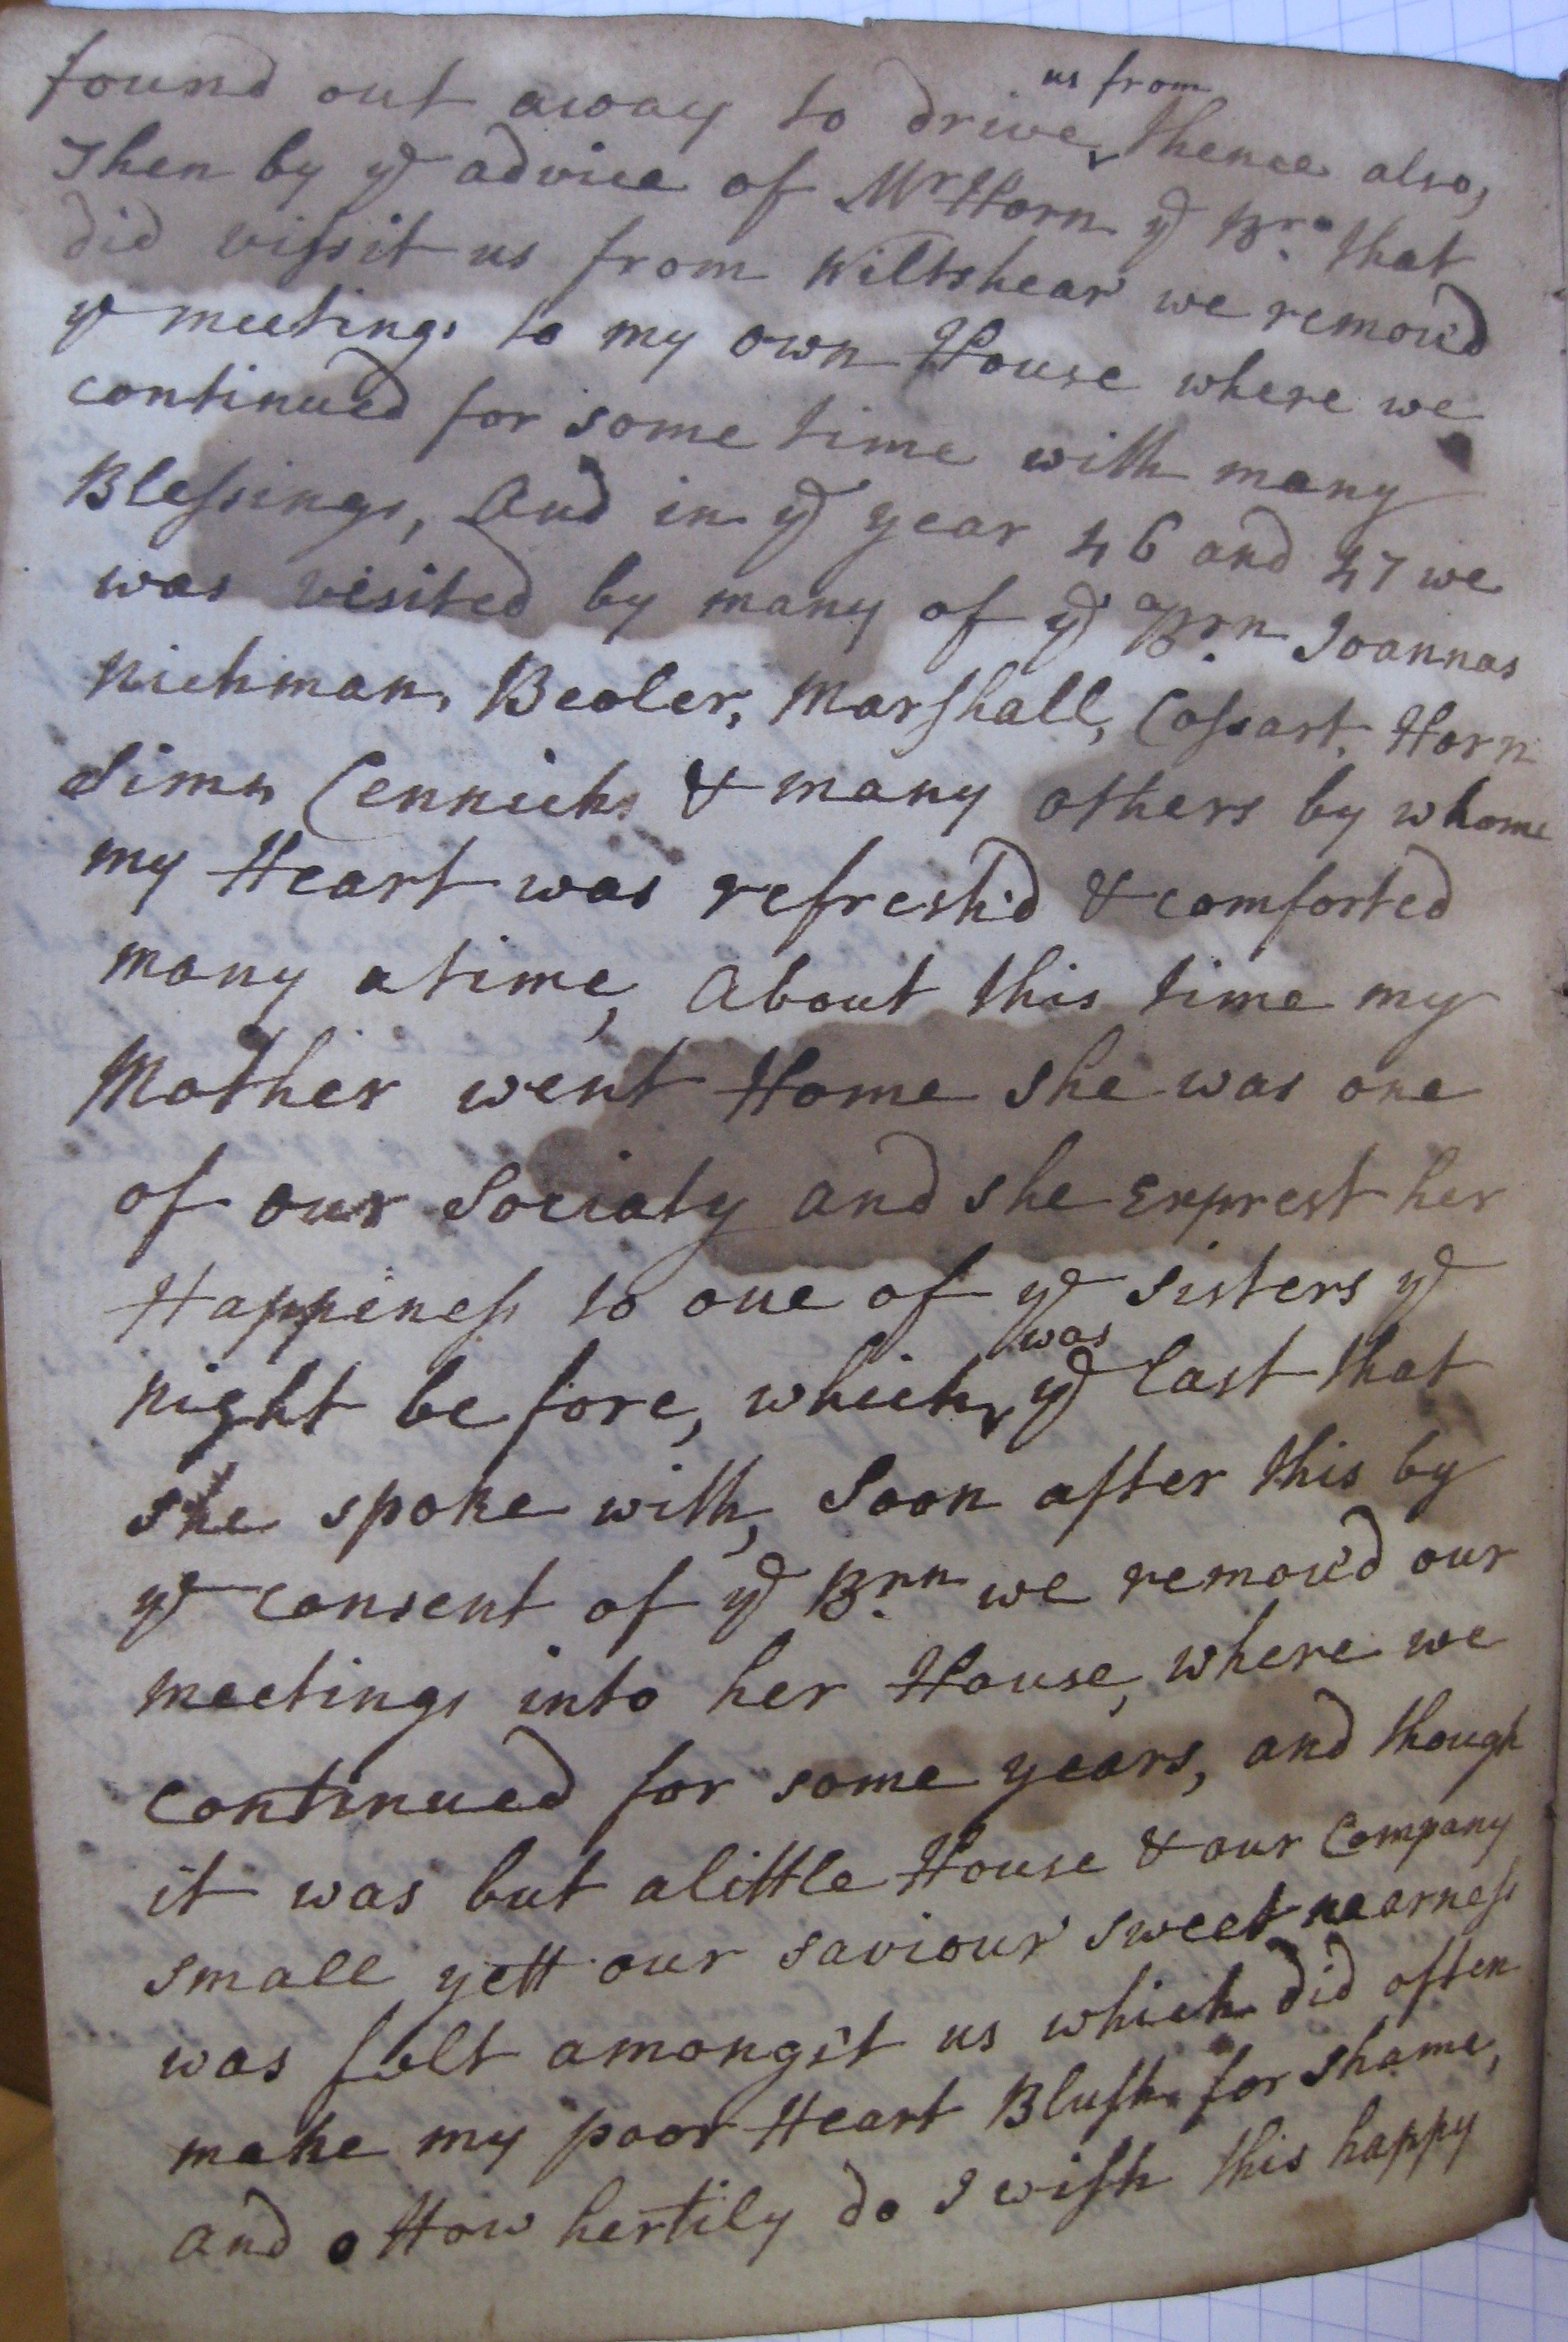 found out away to drive us from thence also,
Then by ye advice of Mr Horn ye Brn that
did vissit us from Wiltshear we remov'd
ye meetings to my own House where we
continued for some time with many
Blessings, And in ye year 46 and 47 we
was visited by many of ye Brn Joannas
Nichman, Beoler, Marshall, Cossart, Horn
Sims Cennick, & many others by whome
my Heart was refresh'd & comforted
many atime, About this time my
Mother went Home she was one
of our Sociaty and she Exprest her
Happiness to one of ye sisters ye
night before, which was ye last that
she spoke with, Soon after this by
ye consent of ye Brn we remov'd our
meetings into her House, where we
continued for some years, and though
it was but alittle House & our Company
small yett our saviour sweet nearness
was felt amongst us which did often
make my poor Heart Blush for shame,
and o How hertily do I wish this happy